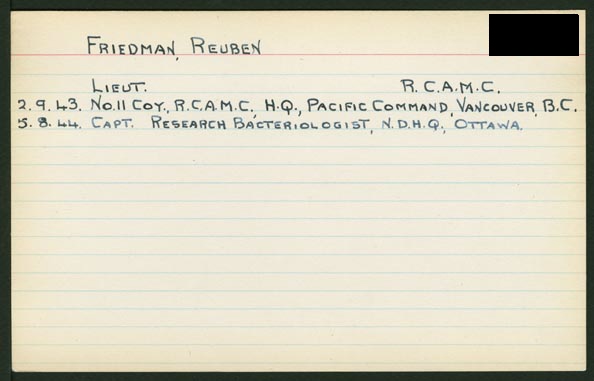 FRIEDMAN, REUBEN
LIEUT. R.C.A.M.C.
2.9.43. NO.11 COY., R.C.A.M.C., H.Q., PACIFIC COMMAND, VANCOUVER, B.C.
5.8.44. CAPT. RESEARCH BACTERIOLOGIST, N.D.H.Q., OTTAWA.